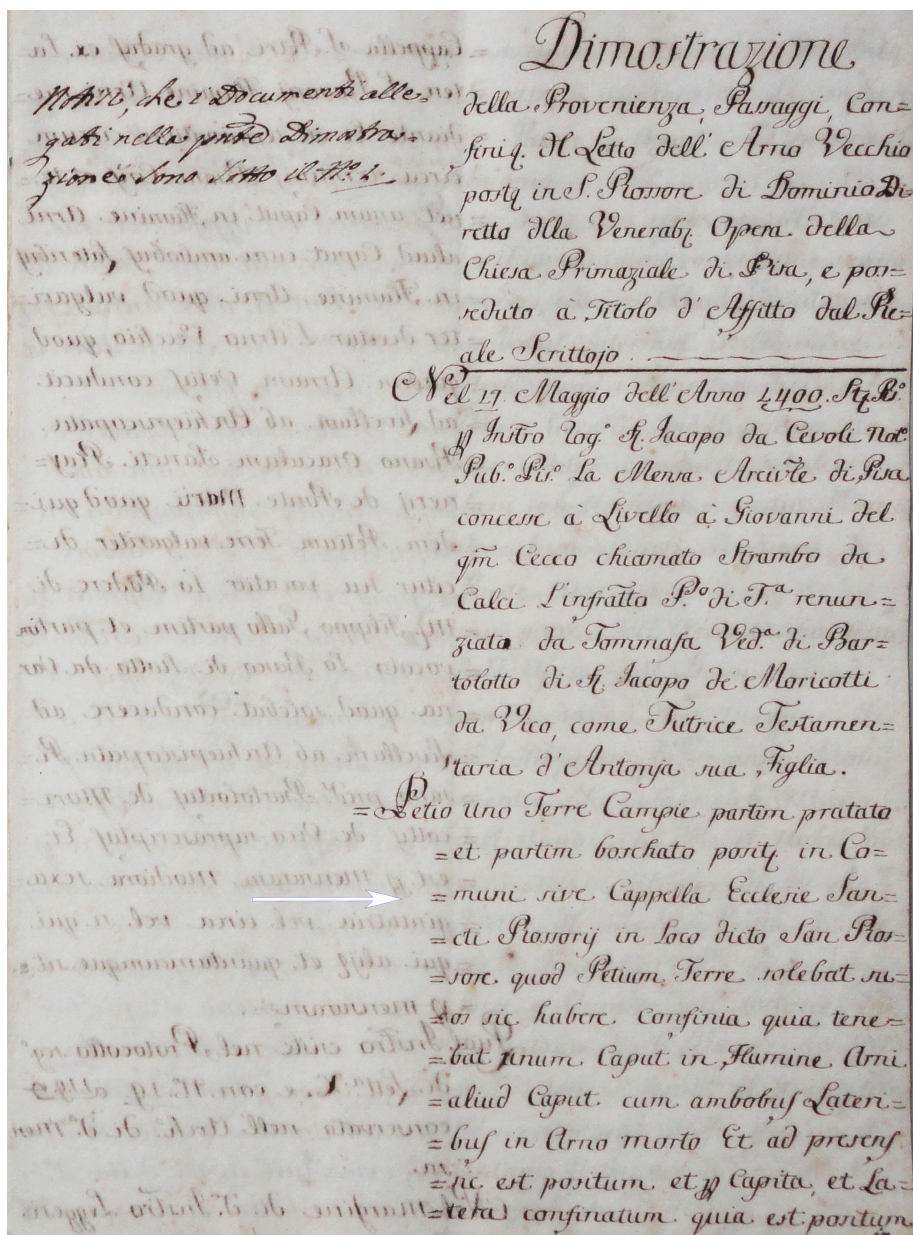 Dimostrazione
della Provenienza, Passaggi, Con=
fini q. dl Letto dell' Arno Vecchio
postq in S. Rossore di Dominio Di
retto dlla Venerabq Opera della
Chiesa Primaziale di Pisa, e pos=
seduto à Titolo d' Affitto dal Re=
ale Scrittojo.
Nel 17. Maggio dell' Anno 1400. Stq Pis.º
p Instro Rog.º Sr. Jacopo da Cevoli Not.º
Pub.º Pis.º La Mensa Arcivle di Pisa
concesse à Livello à Giovanni del
qm Cecco chiamato Strambo da
Calci L'infratto P.º di T.a renun=
ziato da Tommasa Ved.a di Bar=
tolotto di Sr. Jacopo de Moricotti
da Vico, come Tutrice Testamen=
taria d' Antonja sua Figlia.
=Petio Uno Terre Campie partim pratato
=et partim boschato positq in Co=
=muni sive Cappella Ecclesie San=
=cti Rossorij in Loco dicto San Ros=
=sore quod Petium Terre solebat su=
=os sic habere Confinia quia tene=
=bat unum Caput in Flumine Arni
=aliud Caput cum ambobus Lateri=
=bus in Arno morto Et ad presens
=sic est positum et p Capita, et La=
=tera confinatum quia est positum
Notisi, che i Documenti alle=
gati nella pnte Dimostra=
zione sono sotto il N.º 1.